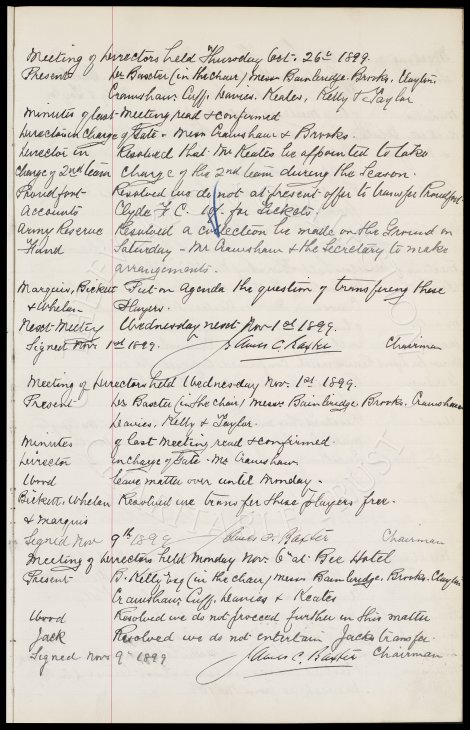 Meeting of Directors held Thursday Oct. 26th 1899.
Present Dr Baxter (in the chair) Messrs Bainbridge. Brooks. Clayton.
Crawshaw. Cuff. Davies. Keates, Kelly & Taylor
Minutes of last Meeting read & confirmed
Directors in charge of Gate - Messrs Crawshaw & Brooks.
Director in Resolved that Mr Keates be appointed to take
charge of 2nd team charge of the 2nd team during the Season.
Proudfoot Resolved we do not at present offer to transfer Proudfoot.
Accounts Clyde F.C. for Tickets.
Army Reserve Resolved a collection be made on the Ground on
Fund Saturday - Mr Crawshaw & the Secretary to make
arrangements.
Marquis, Bickett Put on Agenda the question of transfering these
& Whelan Players.
Next Meeting Wednesday next Nov 1st 1899.
Signed Nov. 1st 1899. James C. Baxter Chairman
Meeting of Directors held Wednesday Nov. 1st 1899.
Present Dr Baxter (in the Chair) Messrs Bainbridge. Brooks. Crawshaw
Davies, Kelly & Taylor.
Minutes of last Meeting read & confirmed.
Director in charge of Gate - Mr Crawshaw.
Wood leave matter over until Monday -
Bickett. Whelan Resolved we transfer these Players free.
& Marquis
Signed Nov 9th 1899 James C. Baxter Chairman
Meeting of Directors held Monday Nov. 6th at Bee Hotel
Present D. Kelly Esq (in the chair) Messrs Bainbridge, Brooks, Clayton
Crawshaw, Cuff, Davies & Keates
Wood Resolved we do not proceed further in this matter
Jack Resolved we do not entertain Jacks transfer.
Signed Nov 9th 1899 James C. Baxter Chairman